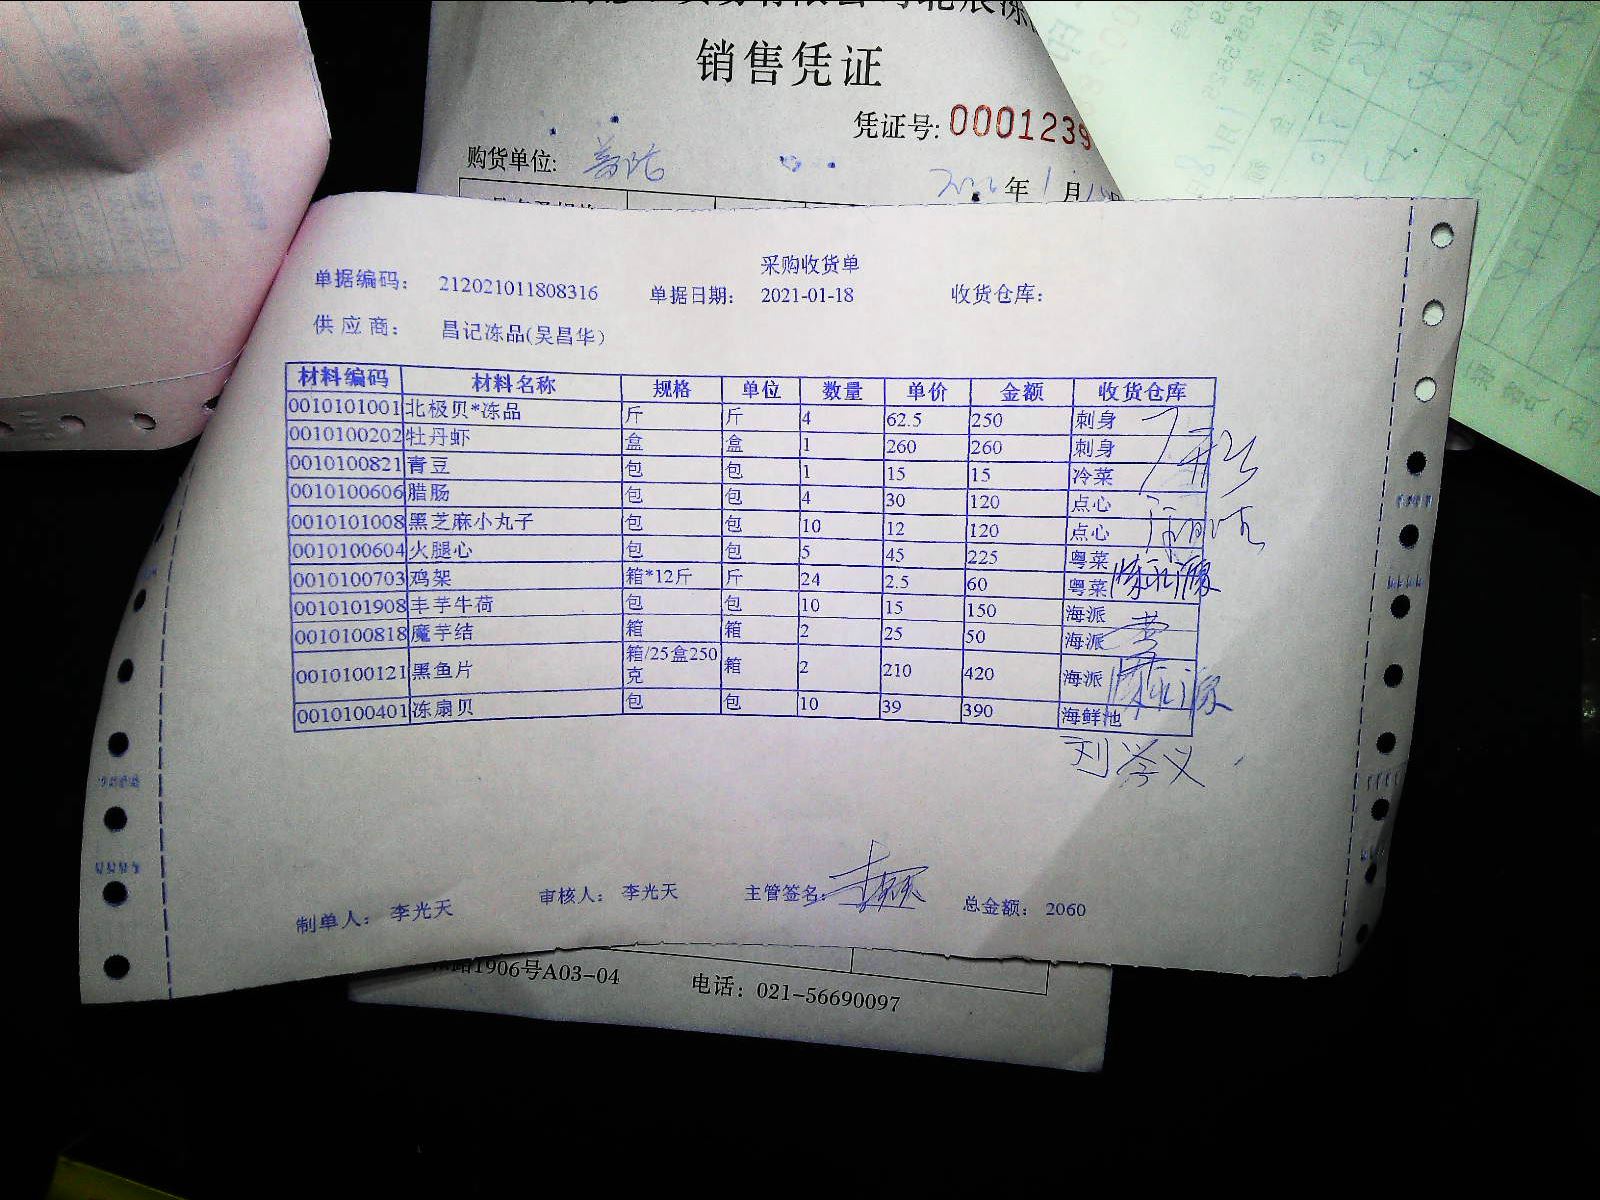 销售凭证
凭证号: 0001239
购货单位:
年 1 月
采购收货单
单据编码: 212021011808316 单据日期: 2021-01-18 收货仓库:
供应商: 昌记冻品(吴昌华)
材料编码 材料名称 规格 单位 数量 单价 金额 收货仓库
0010101001 北极贝*冻品 斤 斤 4 62.5 250 刺身
0010100202 牡丹虾 盒 盒 1 260 260 刺身
0010100821 青豆 包 包 1 15 15 冷菜
0010100606 腊肠 包 包 4 30 120 点心
0010101008 黑芝麻小丸子 包 包 10 12 120 点心
0010100604 火腿心 包 包 5 45 225 粤菜
0010100703 鸡架 箱*12斤 斤 24 2.5 60 粤菜
0010101908 丰芋牛荷 包 包 10 15 150 海派
0010100818 魔芋结 箱 箱 2 25 50 海派
0010100121 黑鱼片 箱/25盒250克 箱 2 210 420 海派
0010100401 冻扇贝 包 包 10 39 390 海鲜池
刘学义
制单人: 李光天 审核人: 李光天 主管签名: 总金额: 2060
路1906号A03-04 电话: 021-56690097